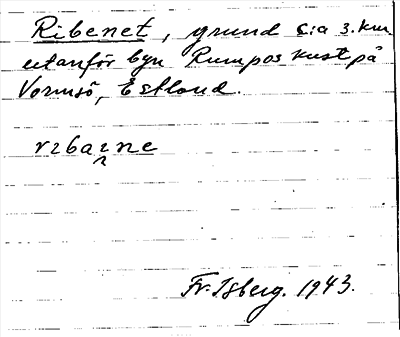 Ribenet, grund c:a 3. km.
utanför byn Rumpos kust på
Vormsö, Estland.
rıbaıne
Fr. Isberg. 1943.